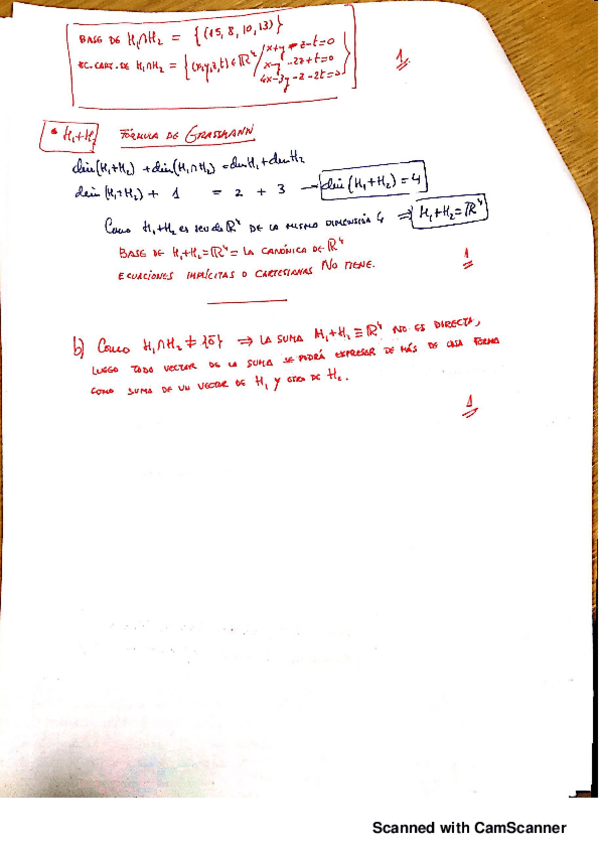 BASE DE H₁∩H₂ = {(15, 8, 10, 13)}
EC. CART. DE H₁∩H₂ = {(x,y,z,t)∈ℝ⁴ / x+y-z-t=0
x-y-2z+t=0
4x-3y-z-2t=0}
1
* H₁+H₂ FÓRMULA DE GRASSMANN
dim(H₁+H₂) + dim(H₁∩H₂) = dim H₁ + dim H₂
dim(H₁+H₂) + 1 = 2 + 3 → dim(H₁+H₂) = 4
Como H₁+H₂ es sev de ℝ⁴ DE LA MISMA DIMENSIÓN 4 ⇒ H₁+H₂=ℝ⁴
BASE DE H₁+H₂=ℝ⁴= LA CANÓNICA DE ℝ⁴
ECUACIONES IMPLÍCITAS O CARTESIANAS NO TIENE.
1
b) Como H₁∩H₂ ≠ {0̄} ⇒ LA SUMA H₁+H₂ ≡ ℝ⁴ NO ES DIRECTA,
LUEGO TODO VECTOR DE LA SUMA SE PODRÁ EXPRESAR DE MÁS DE UNA FORMA
COMO SUMA DE UN VECTOR DE H₁ Y OTRO DE H₂.
1
Scanned with CamScanner